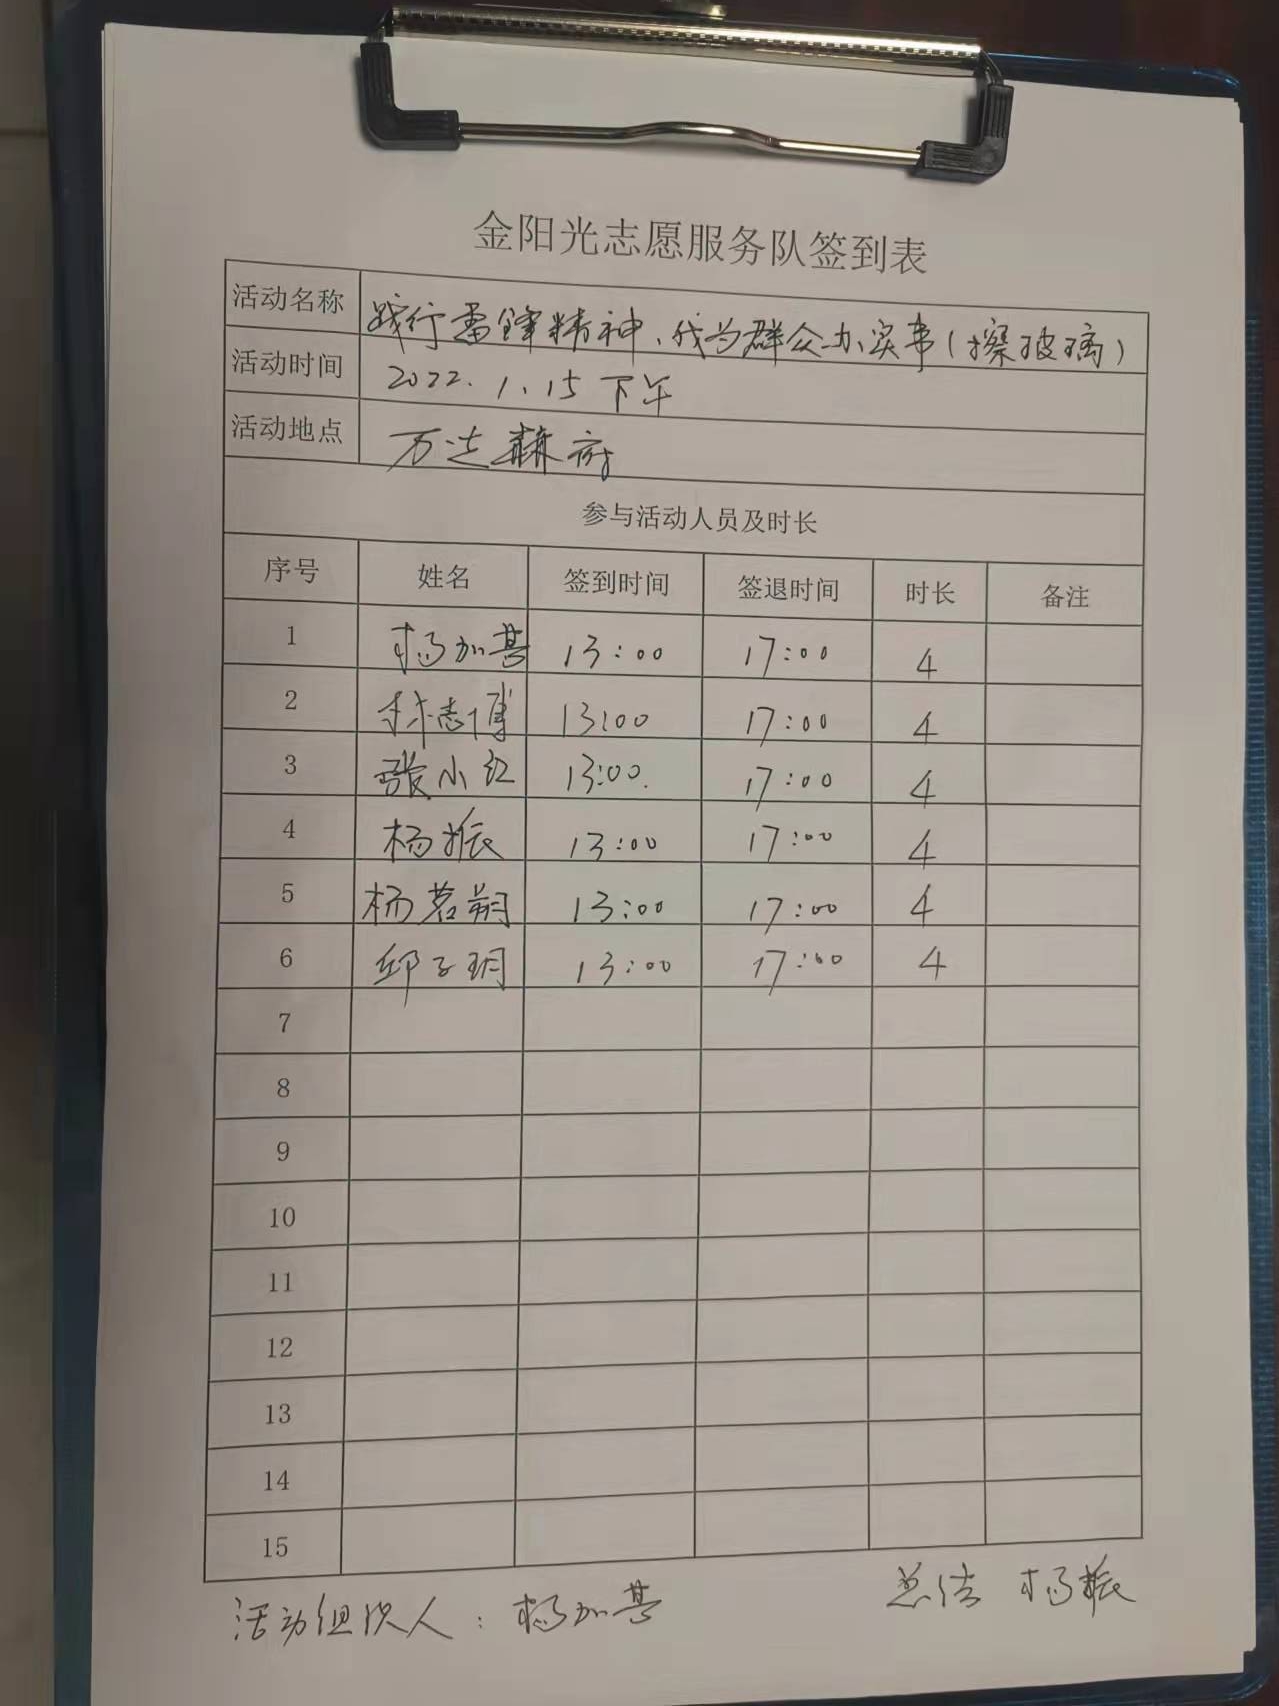 金阳光志愿服务队签到表
活动名称 践行雷锋精神、我为群众办实事(擦玻璃)
活动时间 2022.1.15下午
活动地点 万达
参与活动人员及时长
序号 姓名 签到时间 签退时间 时长 备注
1 杨加基 13:00 17:00 4
2 林志博 13:00 17:00 4
3 张小红 13:00. 17:00 4
4 杨振 13:00 17:00 4
5 杨茗朔 13:00 17:00 4
6 邱子玥 13:00 17:00 4
7
8
9
10
11
12
13
14
15
活动组织人:杨加基 总结 杨振